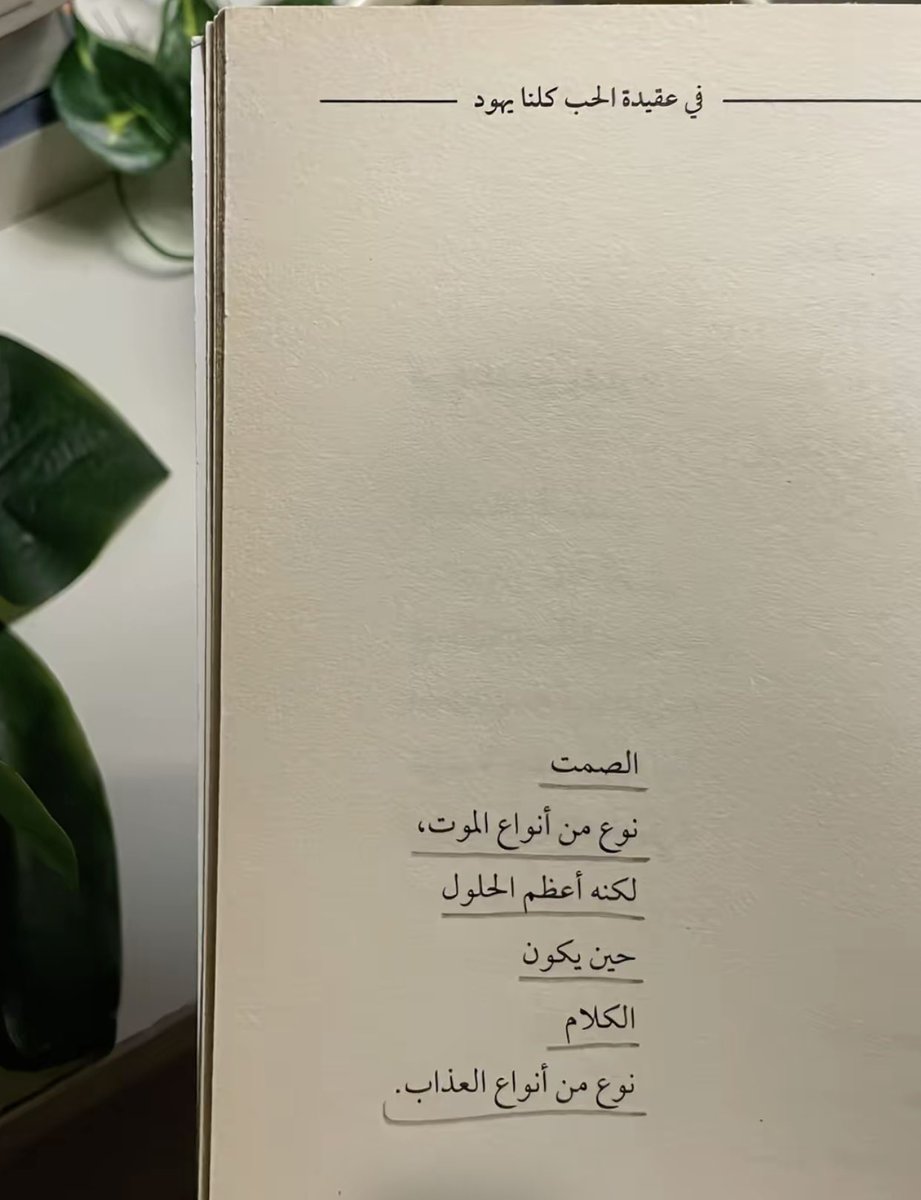 في عقيدة الحب كلنا يهود
الصمت
نوع من أنواع الموت،
لكنه أعظم الحلول
حين يكون
الكلام
نوع من أنواع العذاب.